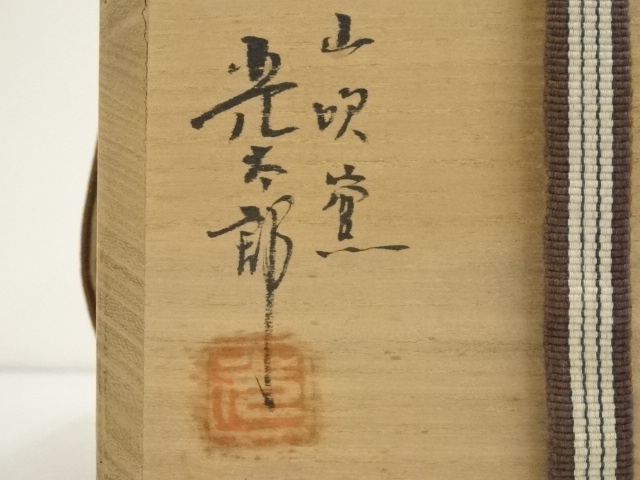 山吹窯
亮太郎